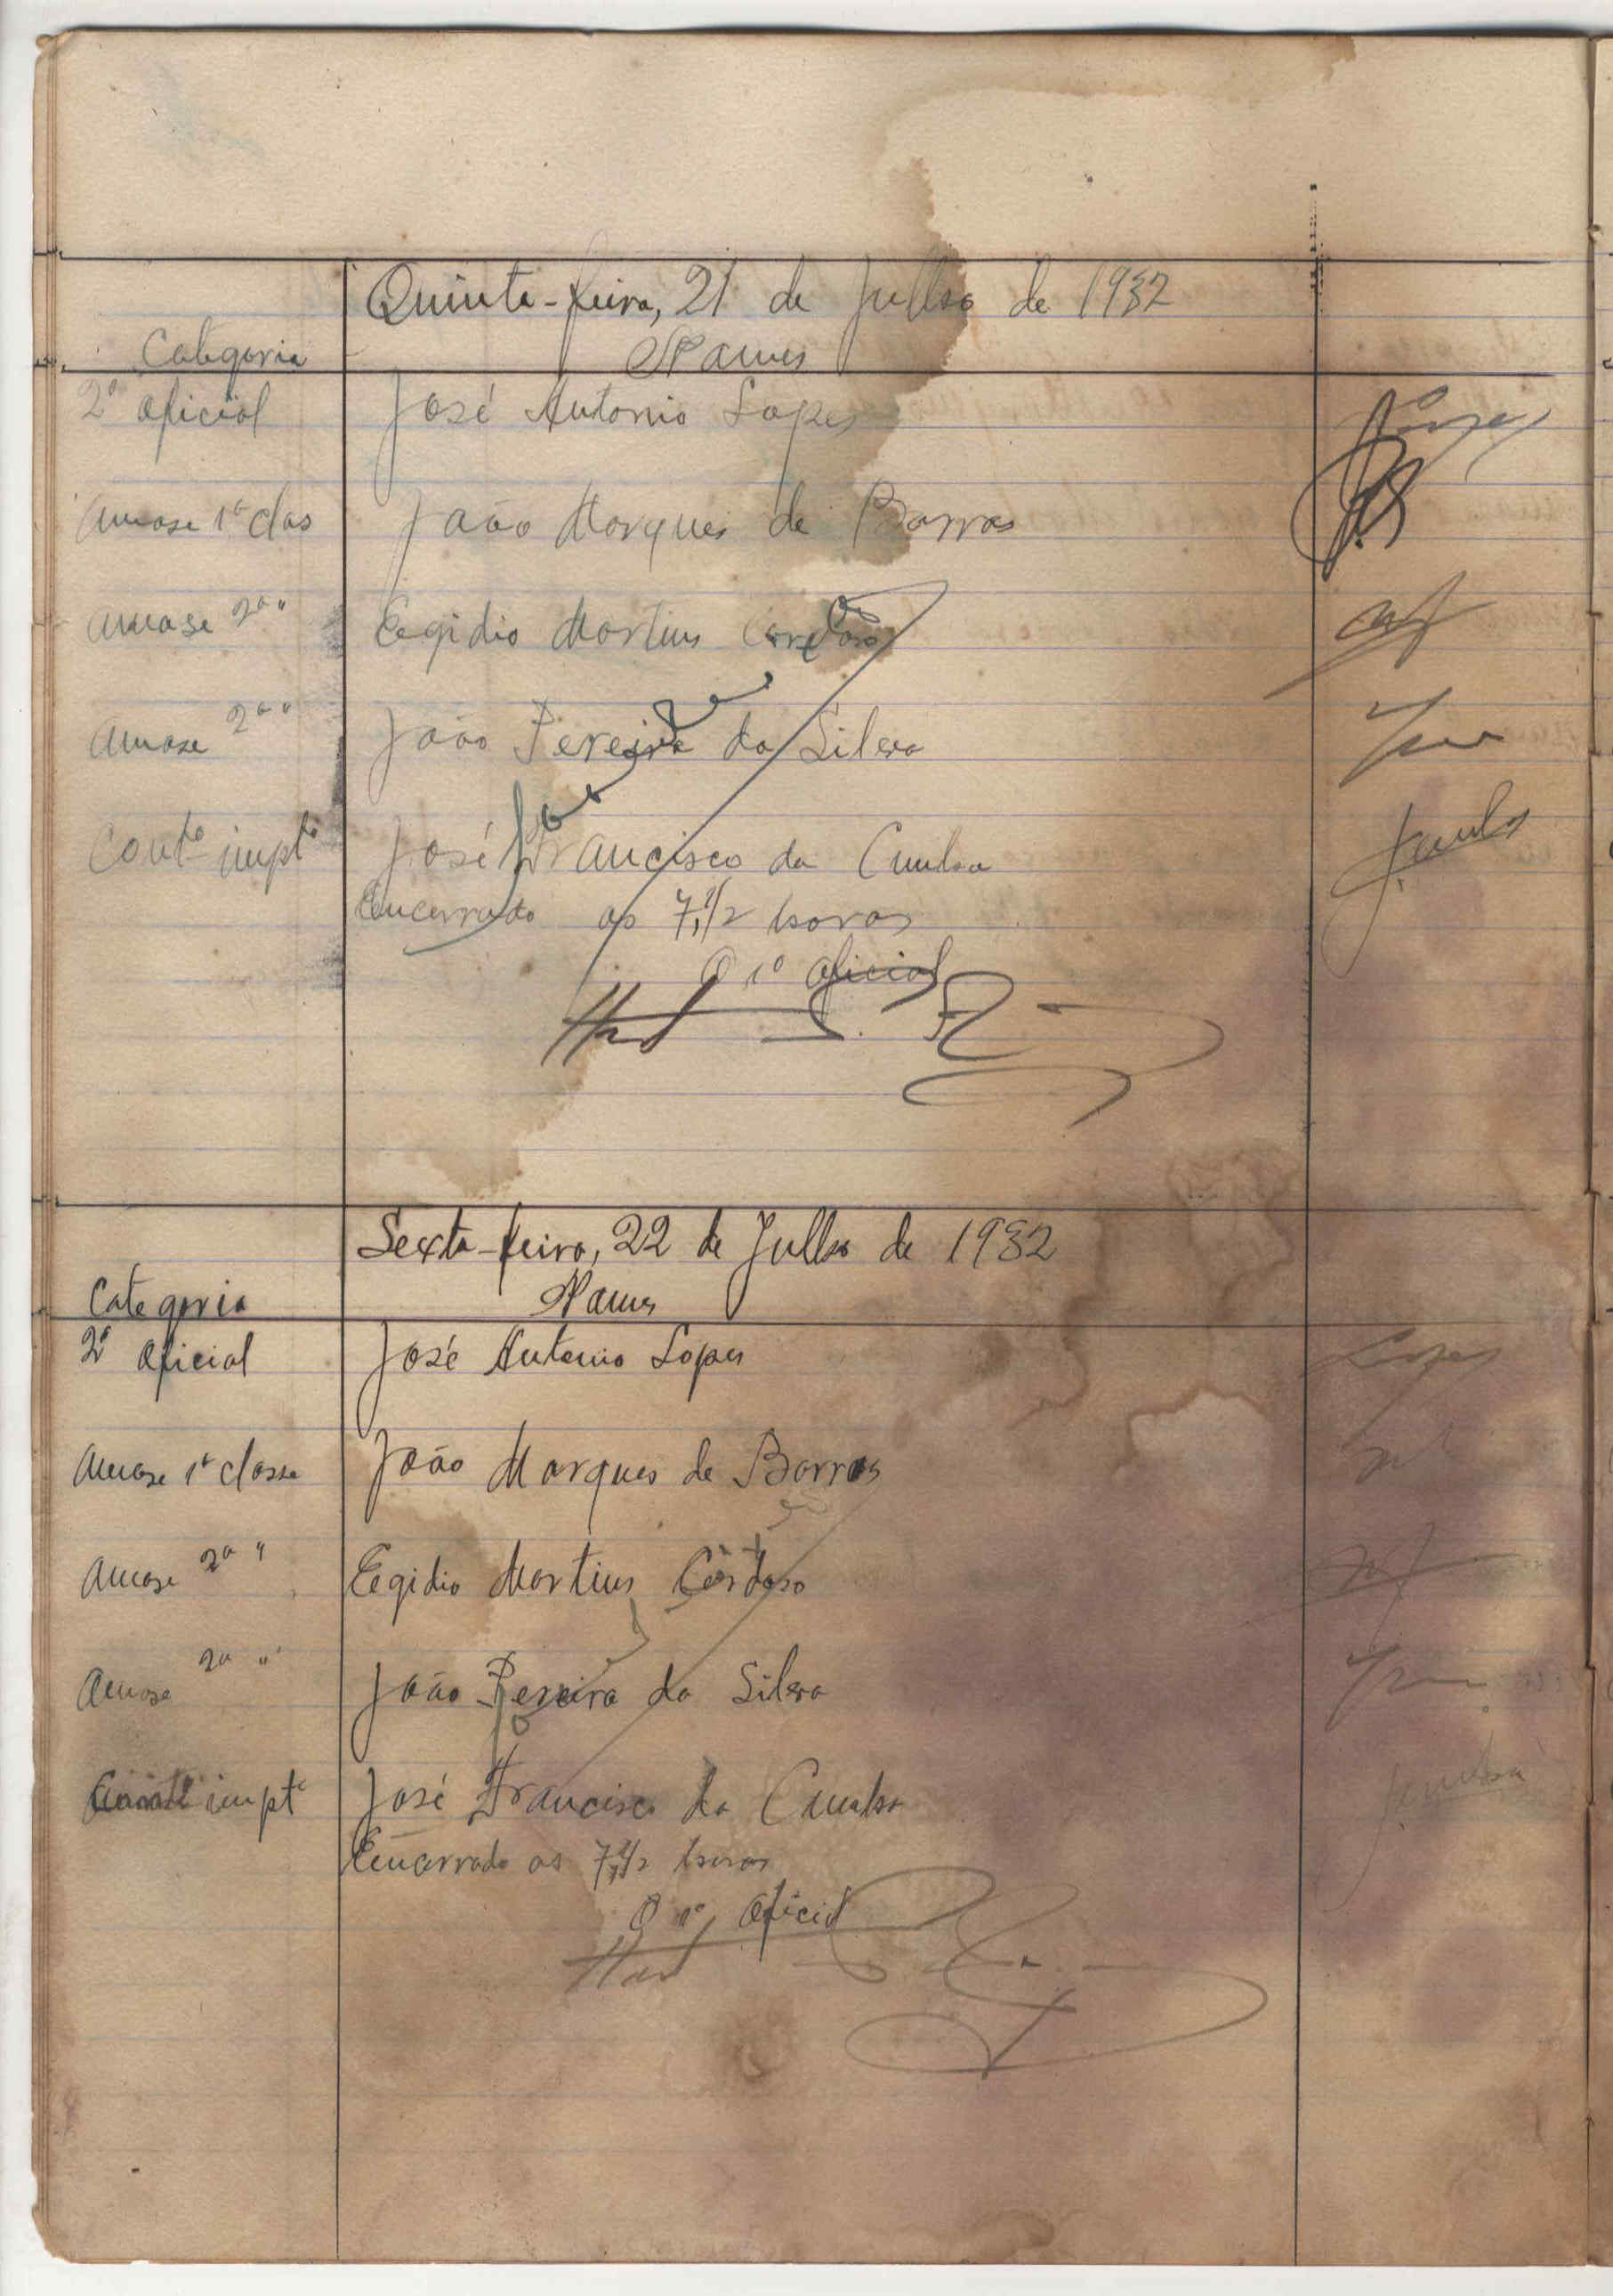 Quinta-feira, 21 de Julho de 1932
Categoria Nomes
2º Oficial José Antonio Lopes Lopes
1ª clas João Marques de Barros
2ª " Egidio Martins Cardoso
2ª " João Pereira da Silva
Contº impt José Francisco da Cunha JCunha
Encerrado as 7,1/2 horas
O 1º Oficial
Sexta-feira, 22 de Julho de 1932
Categoria Nomes
2º Oficial José Antonio Lopes Lopes
1ª classe João Marques de Barros
2ª " Egidio Martins Cardoso
2ª " João Pereira da Silva
impt José Francisco da Cunha JCunha
Encerrado as 7,1/2 horas
O 1º Oficial